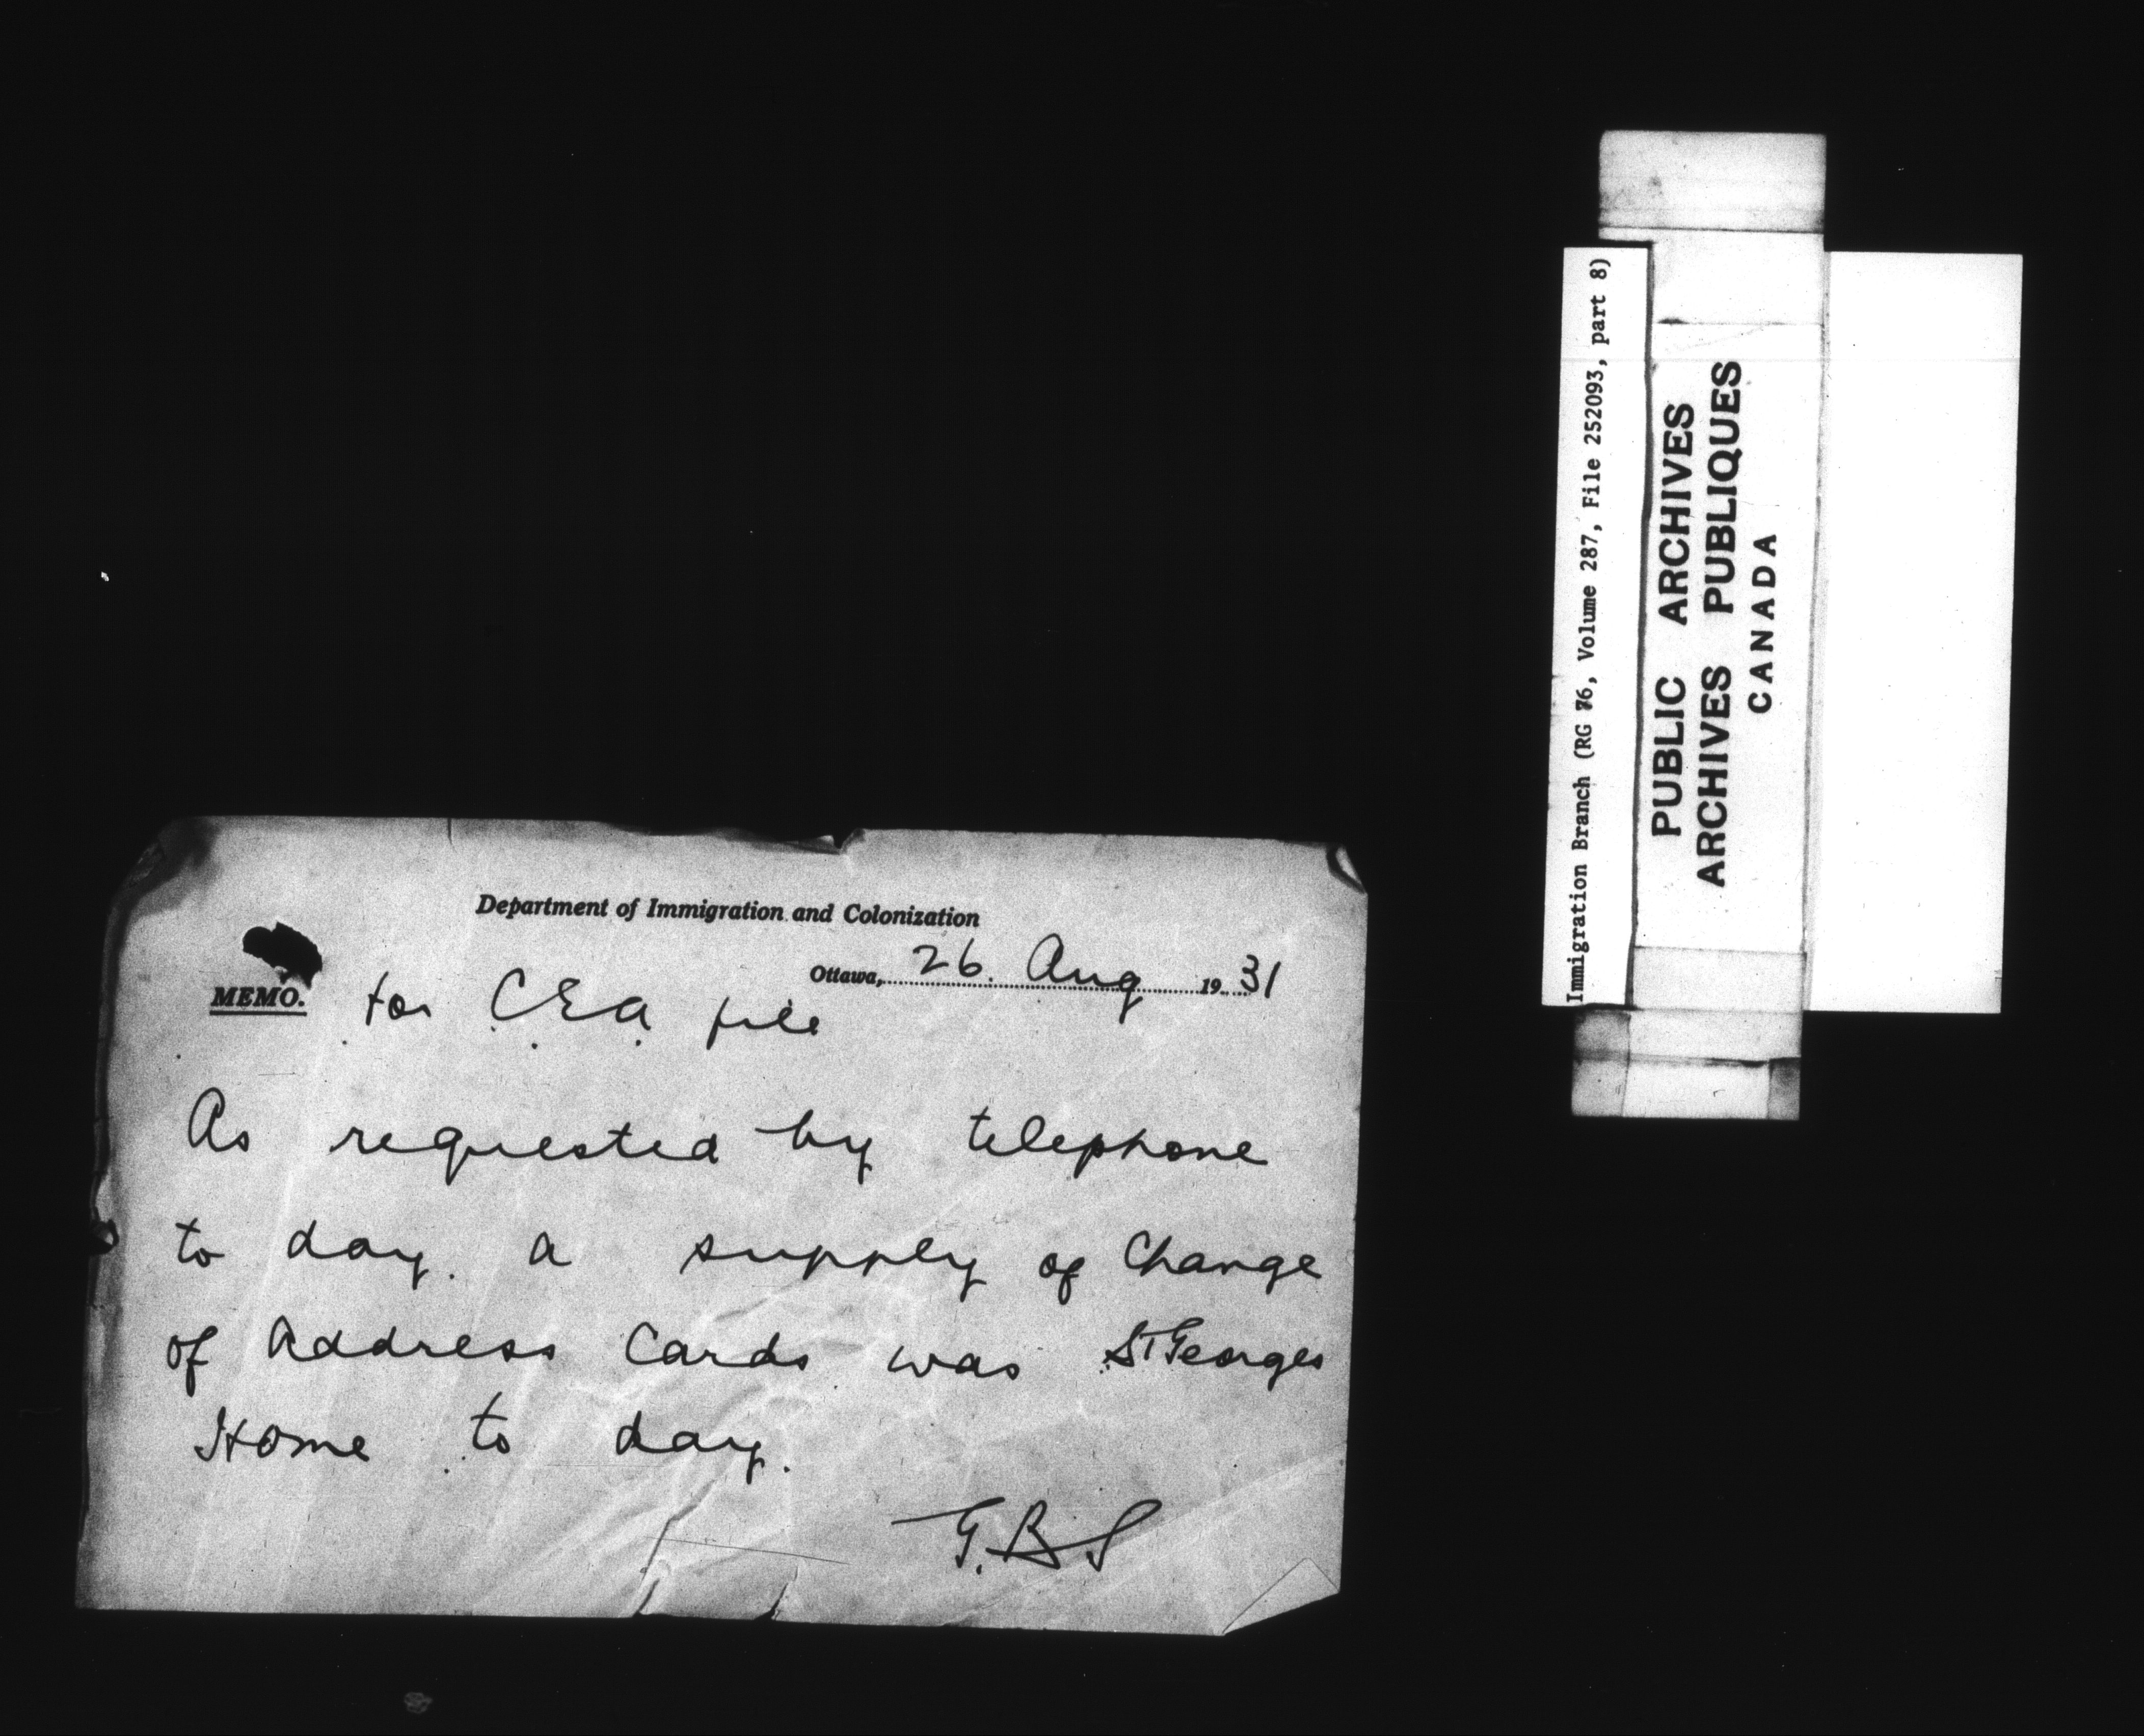 Department of Immigration and Colonization
Ottawa, 26 Aug 1931
MEMO. for C.E.A. file
As requested by telephone
to day. a supply of Change
of Address Cards was St Georges
Home to day.
G.B.S
Immigration Branch (RG 76, Volume 287, File 252093, part 8)
PUBLIC ARCHIVES
ARCHIVES PUBLIQUES
CANADA